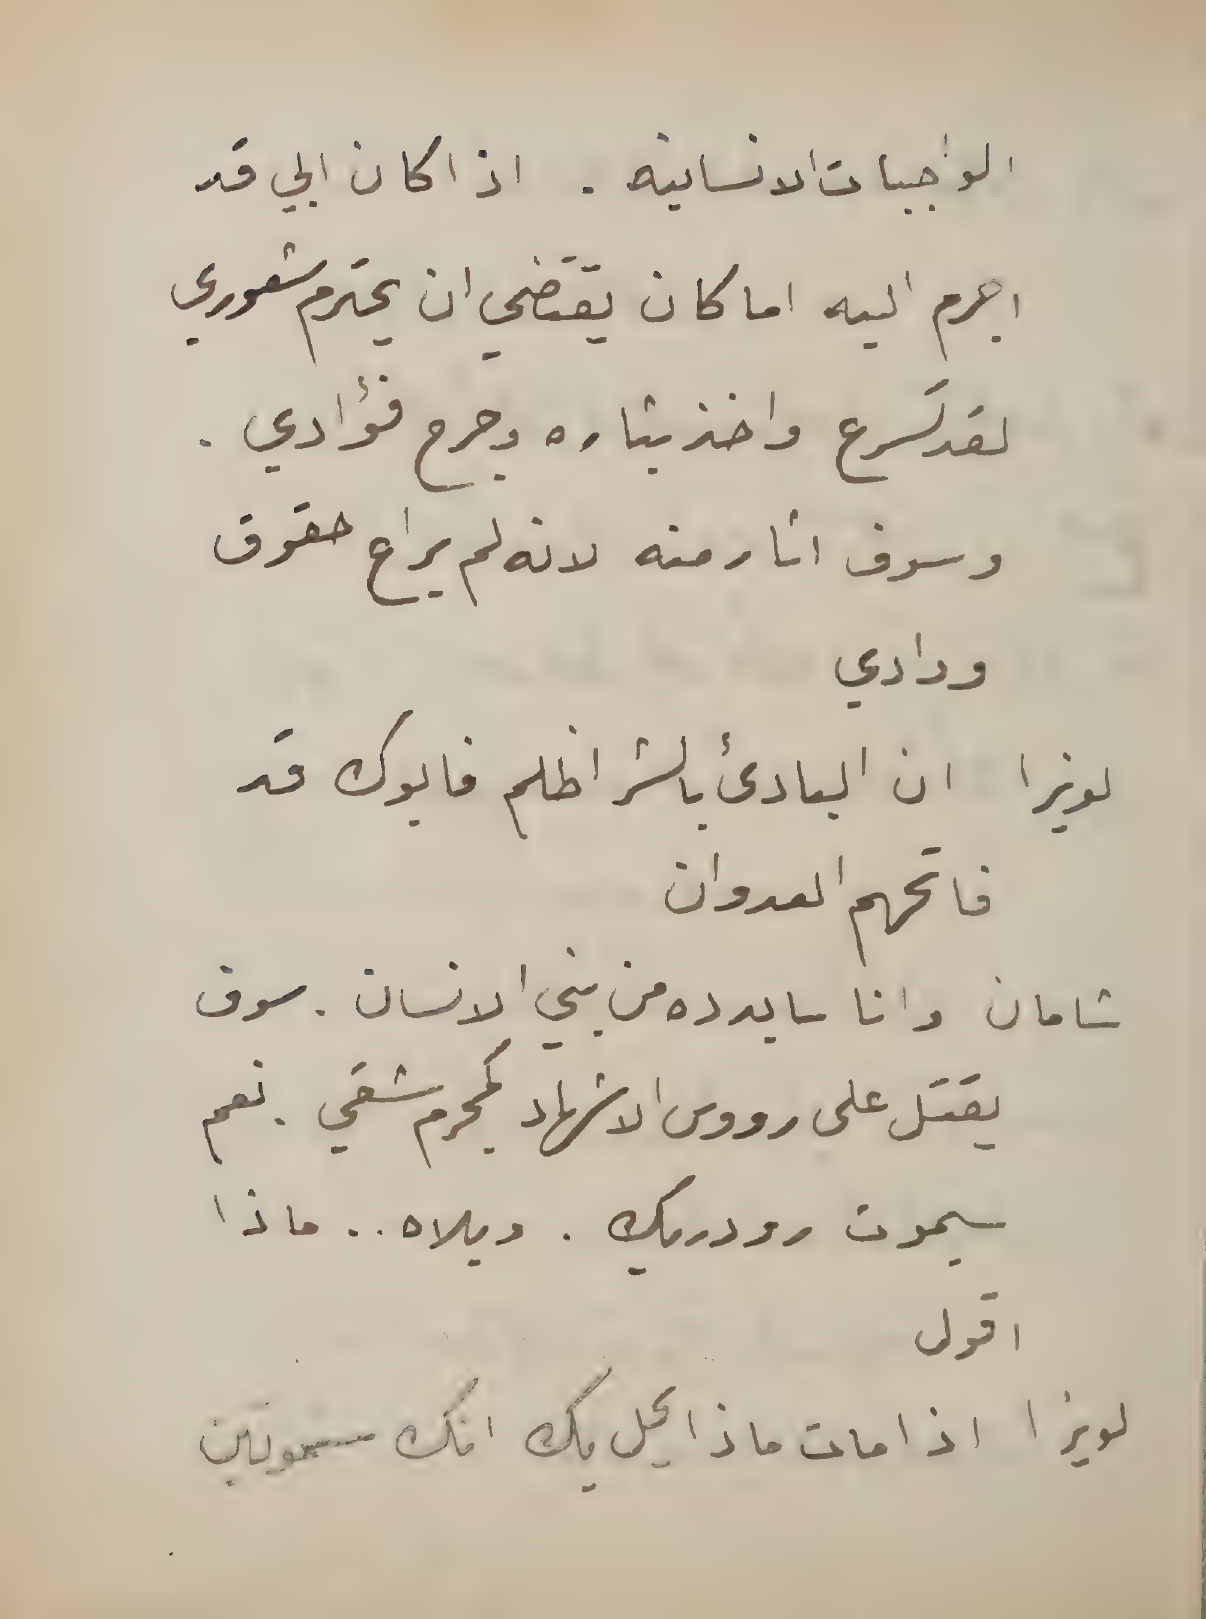 الواجبات الانسانيه . اذا كان ابي قد
اجرم اليه اما كان يقتضي ان يحترم شعوري
لقد تسرع واخذ بثاره وجرح فؤادي .
وسوف اثار منه لانه لم يراع حقوق
ودادي
لويزا ان البادئ بالشر اظلم فابوك قد
فاتحهم العدوان
شامان وانا سابدده من بني الانسان . سوف
يقتل على رووس الاشهاد كمجرم شقي . نعم
سيموت رودريك . ويلاه .. ماذا
اقول
لويزا اذا مات ماذا يحل بك انك ستموتين